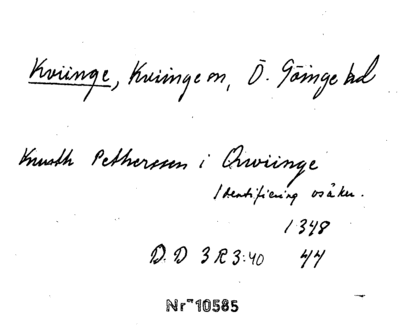 Kviinge, Kviinge sn, Ö. Göinge hd
Knusth Pethersson i Qwiinge
Identifiering osäker.
1348
D.D 3 R 3:40 44
Nr 10585